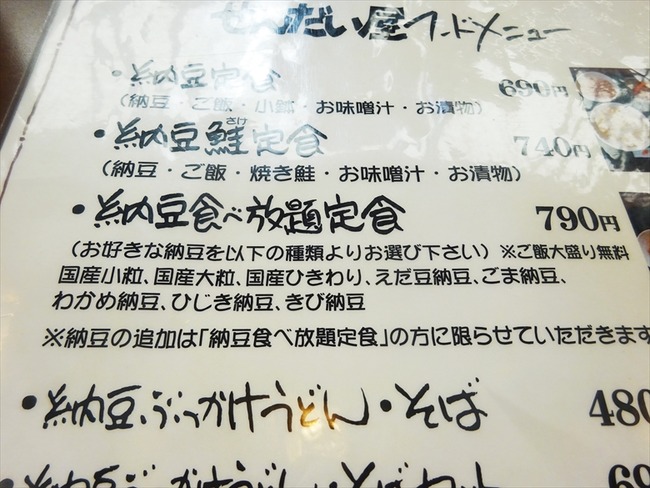 せんだい屋フードメニュー
・納豆定食 690円
(納豆・ご飯・小鉢・お味噌汁・お漬物)
さけ
・納豆鮭定食 740円
(納豆・ご飯・焼き鮭・お味噌汁・お漬物)
・納豆食べ放題定食 790円
(お好きな納豆を以下の種類よりお選び下さい)※ご飯大盛り無料
国産小粒、国産大粒、国産ひきわり、えだ豆納豆、ごま納豆、
わかめ納豆、ひじき納豆、きび納豆
※納豆の追加は「納豆食べ放題定食」の方に限らせていただきます
・納豆ぶっかけうどん・そば 480